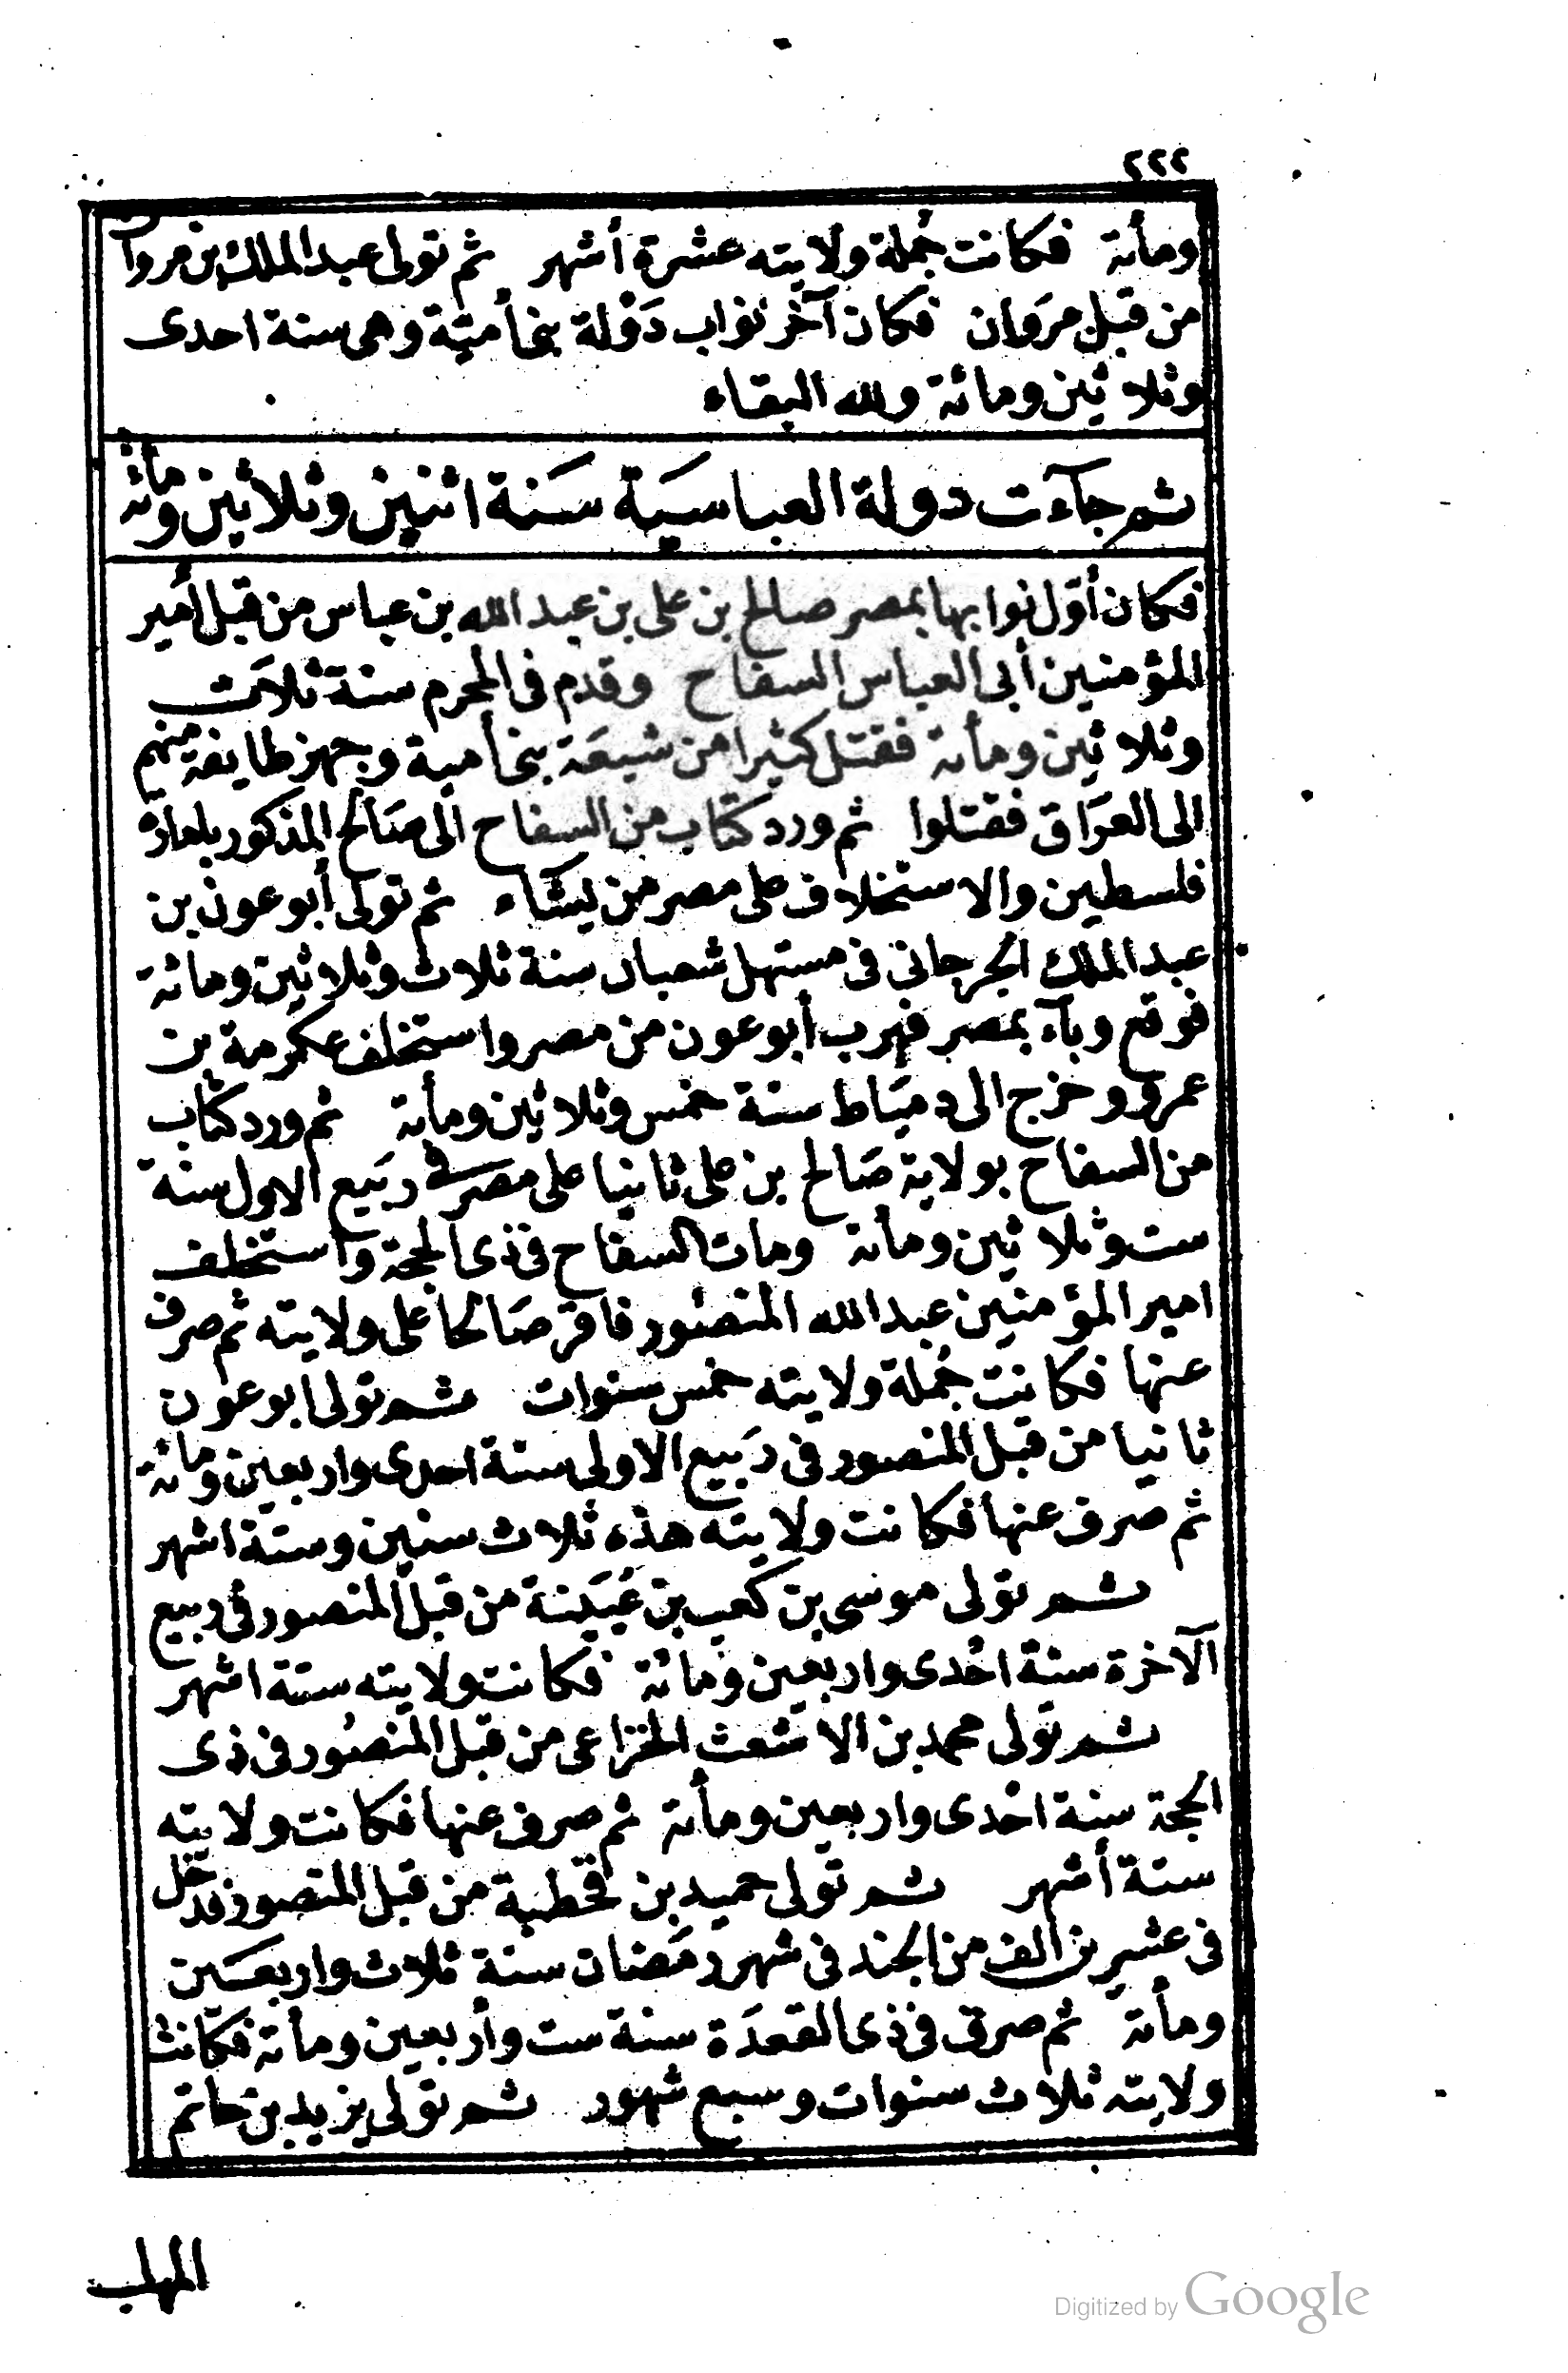 ٢٢٢
ومأتة فكانت جُملة ولايته عشرة أشهر ثم تولى عبد الملك بن مروان
من قبل مرَوان فكان آخر نواب دَوْلة بنى أميّة وهى سنة احدى
وثلاثين ومائة ولله البقاء
ثم جآءت دولة العباسيَة سَنة اثنين وثلاثين ومأته
فكان أوّل نوابها بمصر صالح بن على بن عبد الله بن عباس من قبل أمير
المؤمنين أبى العباس السفاح وقدم فى المحرم سنة ثلاَث
وثلاثين ومأتة فقتل كثيرا من شيعَة بنى أمية وجهز طايفة منهم
الى العرَاق فقتلوا ثم ورد كتاب من السفاح الى صَالح المذكور بامارة
فلسطين والاستخلاف على مصر من يشَاء ثم تولى أبو عون بن
عبد الملك الجرجانى فى مستهل شعبان سنة ثلاث وثلاثين ومائة
فوقع وبآء بمصر فهرب أبو عون من مصر واستخلف عكرمة بن
عمرو وخرج الى دميَاط سنة خمس وثلاثين ومأتة ثم ورد كتاب
من السفاح بولاية صَالح بن على ثانيا على مصرَ فى ربَيع الاول سنة
ست وثلاثين ومأتة ومات السفاح فى ذى الحجة واستخلف
امير المؤمنين عبد الله المنصُور فاقر صَالحا على ولايته ثم صرف
عنها فكانت جُملة ولايته خمس سنوات ثم تولى ابو عون
ثانيا من قبل المنصور فى ربَيع الاولى سنة احدى واربعين ومائة
ثم صرف عنها فكانت ولايته هذه ثلاث سنين وستة اشهر
ثم تولى موسى بن كعب بن عُيَينة من قبل المنصور فى ربيع
الآخرة سنة احْدى واربعين ومائة فكانت ولايته ستة اشهر
ثم تولى محمد بن الاشعث الخزاعى من قبل المنصُور فى ذى
الحجة سنة احْدى واربعين ومأتة ثم صرف عنها فكانت ولايته
ستة أشهر ثم تولى حميد بن قحطبة من قبل المنصور فدخل
فى عشرين ألف من الجند فى شهر رمَضان سنة ثلاث واربعَين
ومأتة ثم صرف فى ذى القعدَة سنة ست وأربعين ومأتة فكانت
ولايته ثلاث سنوات وسبع شهور ثم تولى يزيد بن حاتم
المهلب
Digitized by Google